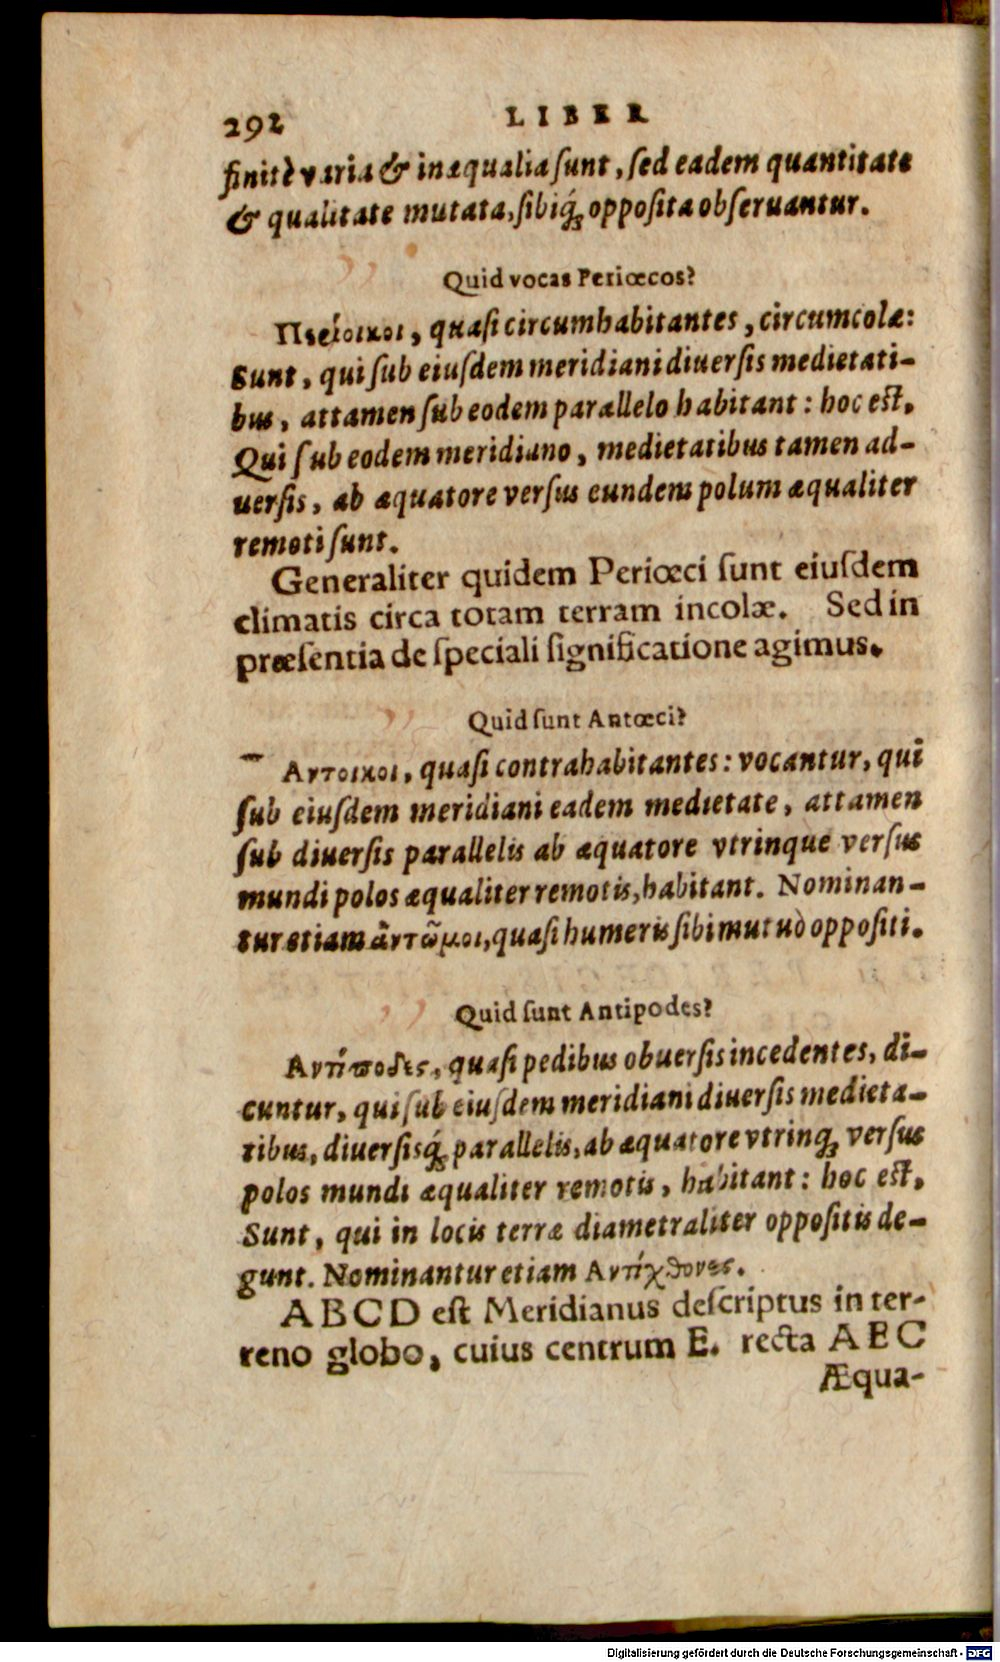 292 LIBER
finitè varia & inæqualia ſunt, ſed eadem quantitate
& qualitate mutata, ſibiq́; oppoſita obſeruantur.
Quid vocas Periœcos?
Περίοικοι, quaſi circumhabitantes, circumcolæ:
Sunt, qui ſub eiuſdem meridiani diuerſis medietati-
bus, attamen ſub eodem parallelo habitant: hoc eſt,
Qui ſub eodem meridiano, medietatibus tamen ad-
uerſis, ab æquatore verſus eundem polum æqualiter
remoti ſunt.
Generaliter quidem Periœci ſunt eiuſdem
climatis circa totam terram incolæ. Sed in
præſentia de ſpeciali ſignificatione agimus.
Quid ſunt Antœci?
Αντοικοι, quaſi contrahabitantes: vocantur, qui
ſub eiuſdem meridiani eadem medietate, attamen
ſub diuerſis parallelis ab æquatore vtrinque verſus
mundi polos æqualiter remotis, habitant. Nominan-
tur etiam ἄντωμοι, quaſi humeris ſibi mutuò oppoſiti.
Quid ſunt Antipodes?
Αντίποδες, quaſi pedibus obuerſis incedentes, di-
cuntur, qui ſub eiuſdem meridiani diuerſis medieta-
tibus, diuerſisq́; parallelis, ab æquatore vtrinq; verſus
polos mundi æqualiter remotis, habitant: hoc eſt,
Sunt, qui in locis terræ diametraliter oppoſitis de-
gunt. Nominantur etiam Αντίχθονες.
ABCD eſt Meridianus deſcriptus in ter-
reno globo, cuius centrum E. recta AEC
Æqua-
Digitalisierung gefördert durch die Deutsche Forschungsgemeinschaft - DFG